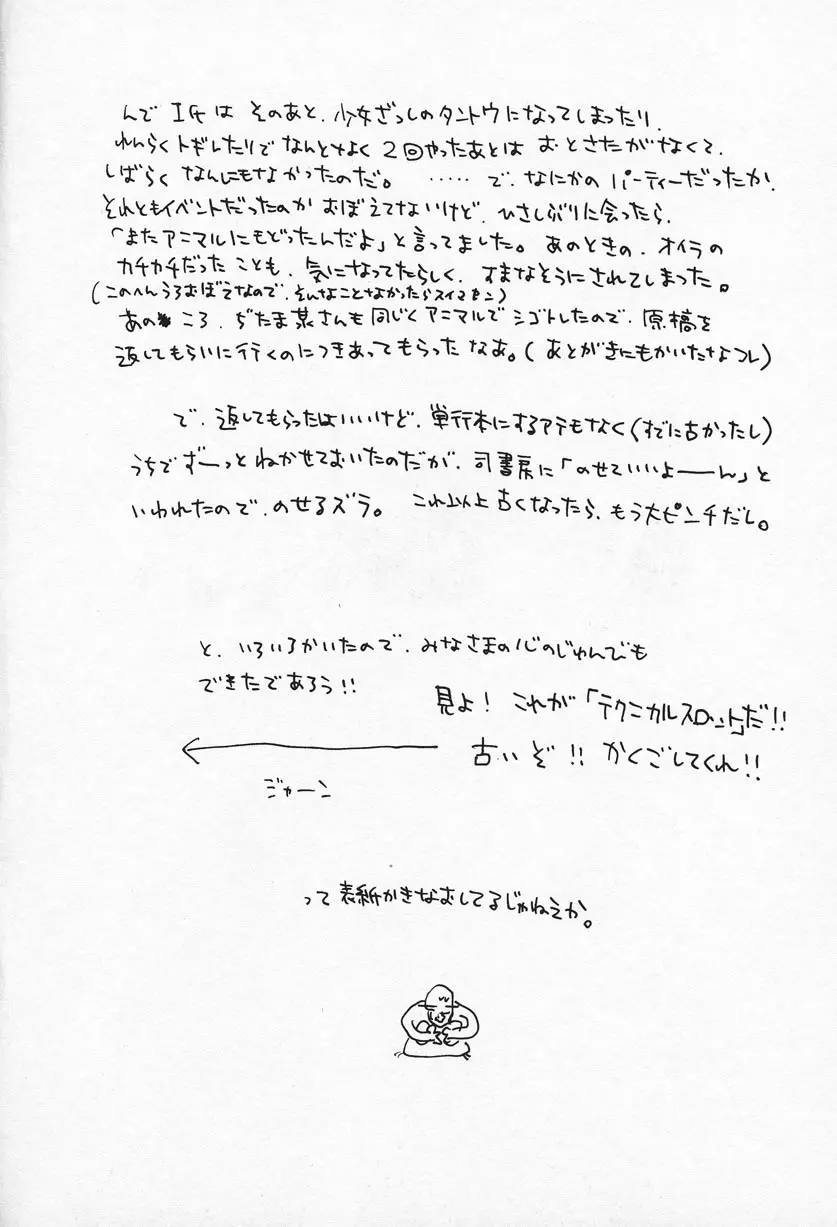 んで I氏は そのあと、少女ざっしのタントウになってしまったり、
れんらくトギレたりで なんとなく 2回やったあとは おとさたがなくて、
しばらく なんにもなかったのだ。 ‥‥‥ で、なにかの パーティーだったか、
それともイベントだったのか おぼえてないけど、ひさしぶりに会ったら、
「またアニマルにもどったんだよ」と言ってました。 あのときの、オイラの
カチカチだった ことも、気になってたらしく、すまなそうにされてしまった。
(このへんうろおぼえなので、そんなことなかったらスイマセン)
あの ころ、ぢたま某さんも同じくアニマルでシゴトしたので、原稿を
返してもらいに行くのにつきあってもらった なあ。(あとがきにもかいたなコレ)
で、返してもらったはいいけど、単行本にするアテもなく(すでに古かったし)
うちでずーっと ねかせておいたのだが、司書房に「のせていいよーーん」と
いわれたので、のせるズラ。 これ以上古くなったら、もう大ピンチだし。
と、いろいろかいたので、みなさまの心のじゅんびも
できたであろう!!
見よ! これが「テクニカルスロット」だ!!
古いぞ!! かくごしてくれ!!
ジャーン
って 表紙かきなおしてるじゃねえか。